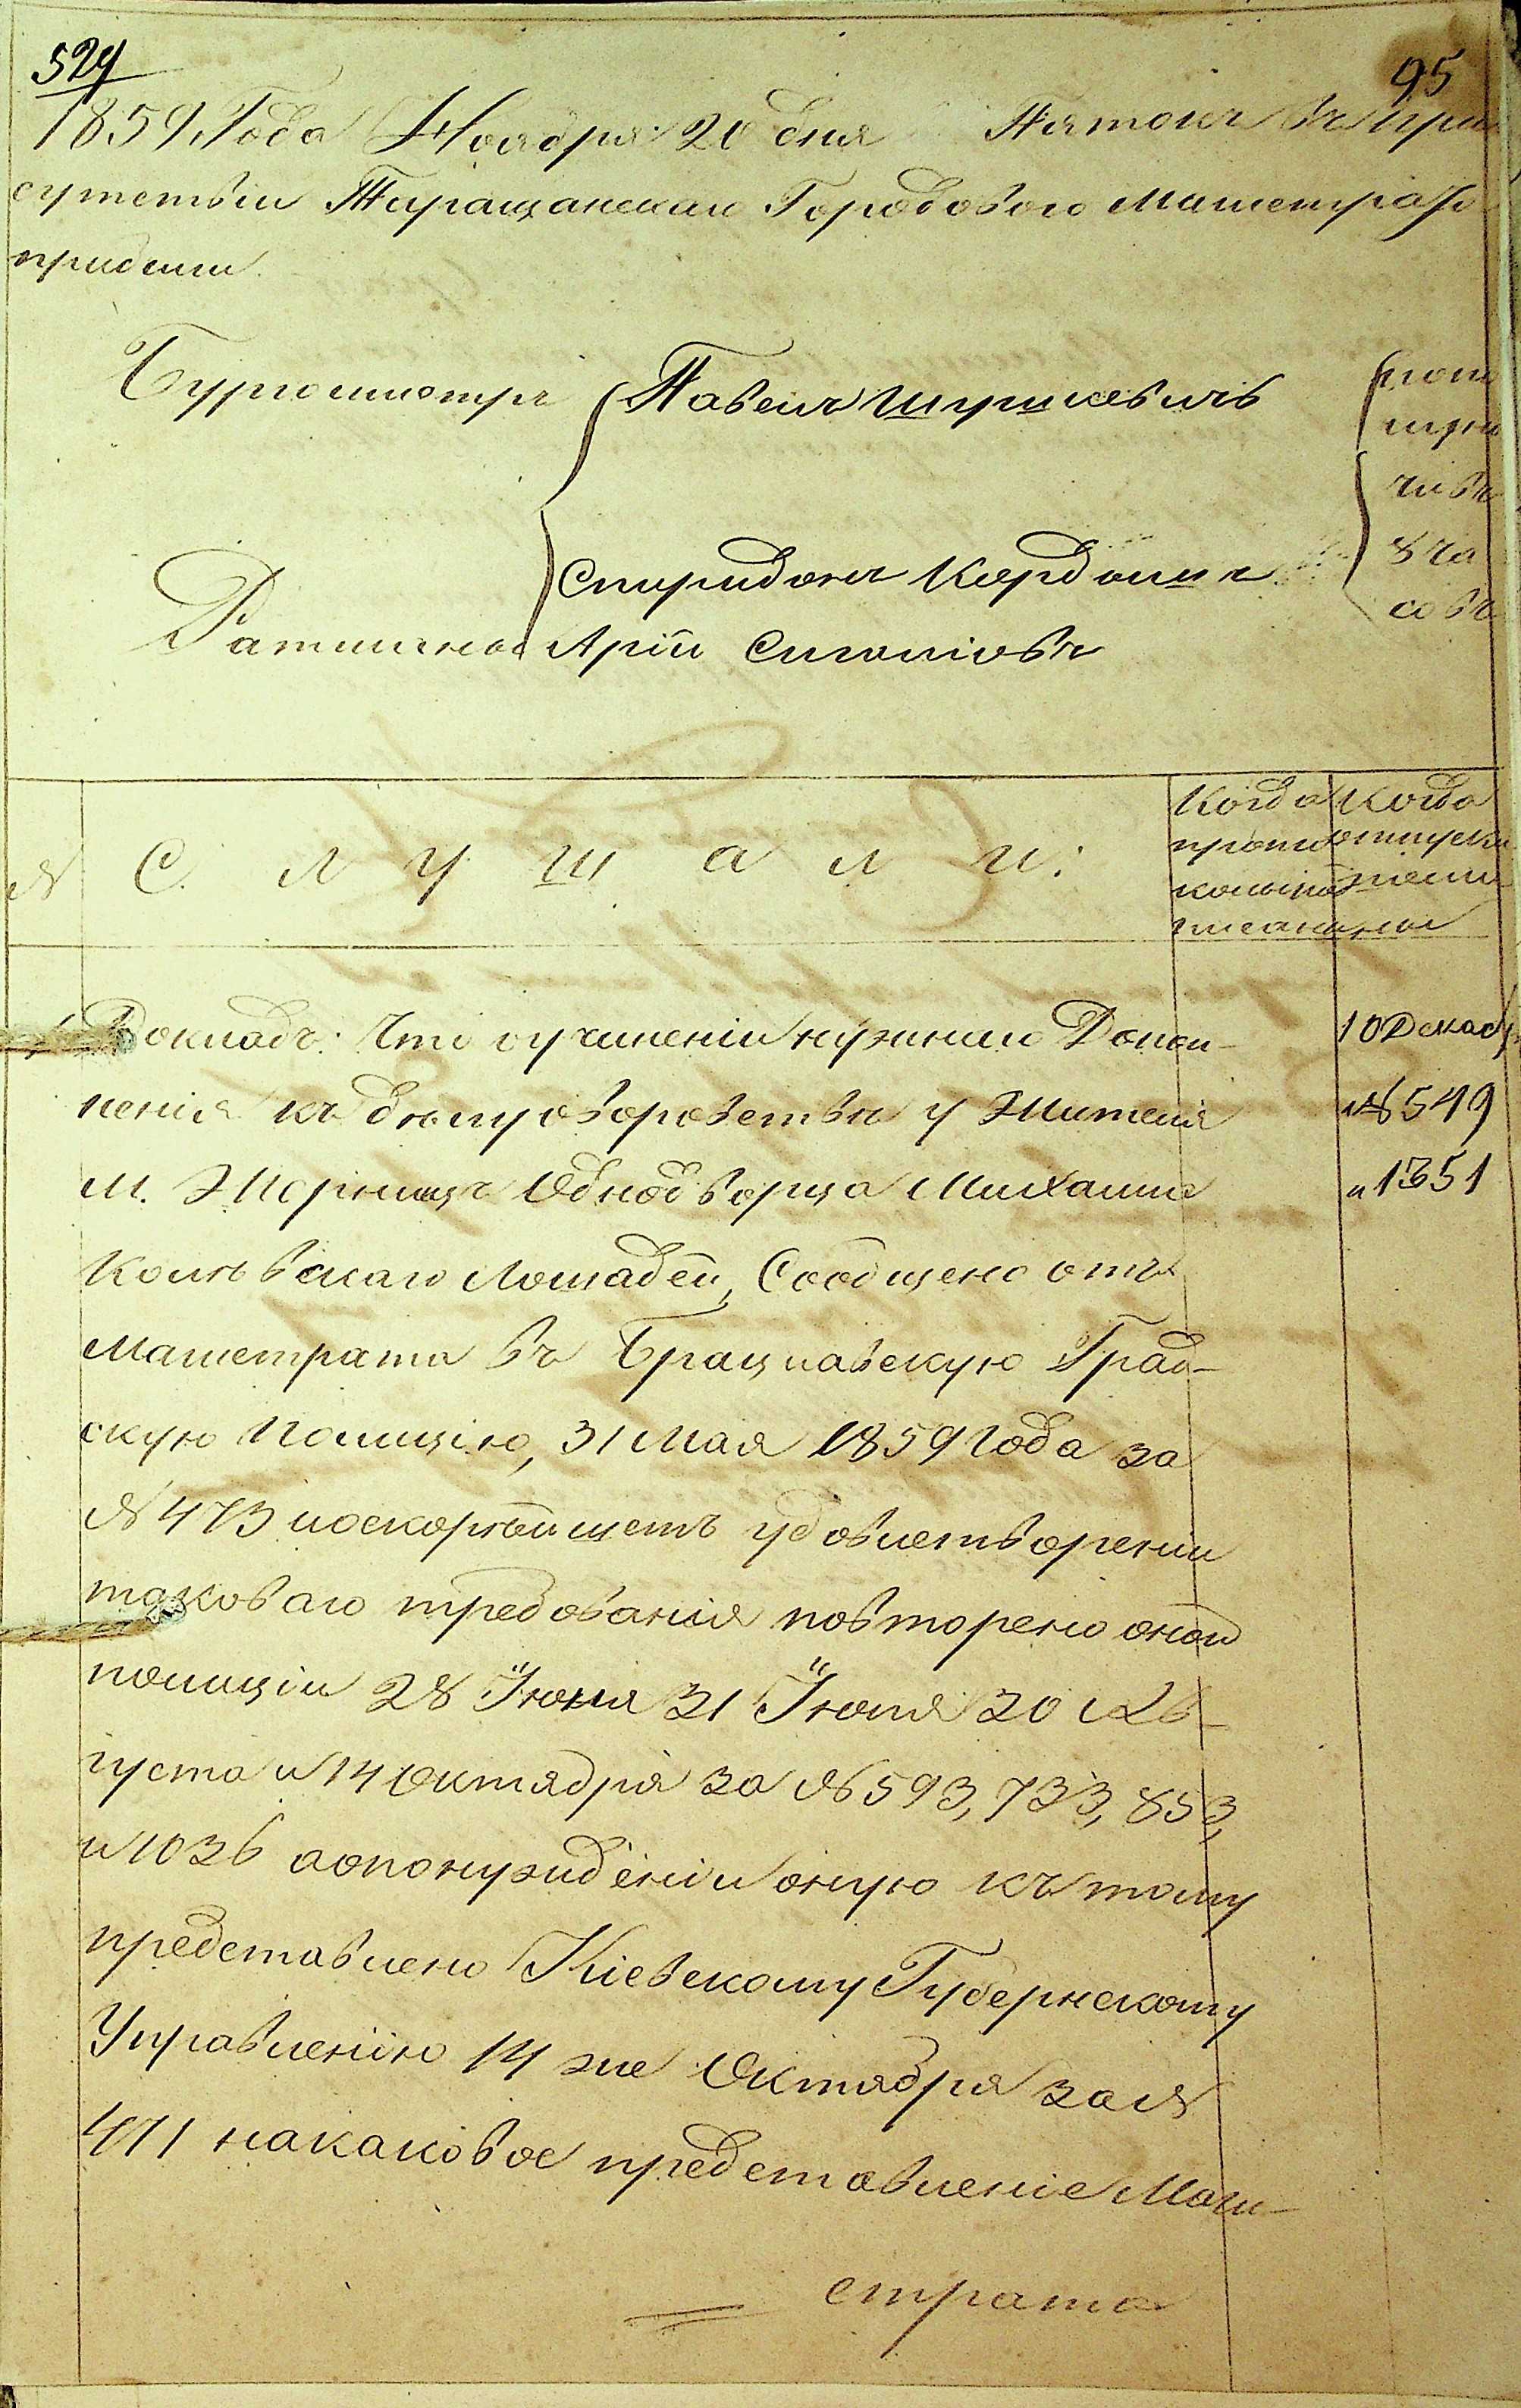 524
95
1859 Года Ноября 20 дня Пятокъ въ при
сутствіи Таращанскаго Городоваго Магистрата
придсіи
Бургомистръ Павелъ Шушкевичъ
Спиридонъ Кордашъ
Ратманы Арій Смоліовъ
чивъ
8 ча
совъ
№ С л у ш а л и :
Когда прото колы под писаны
Когда отпуски
1 Докладъ: Что о учиненіи нужнаго Допол-
ненія къ дѣлу о воровствѣ у Жителя
М. Жорнищъ Однодворца Михаила
Колѣвскаго Лошадей, Сообщено отъ
Магистрата въ Брацлавскую Град-
скую Полицію, 31 Мая 1859 Года за
№ 473 поскорѣйшемъ удовлетвореніи
таковаго требованія повторено оной
полиціи 28 Іюня 31 Іюля 30 Ав-
густа и 14 Октября за № 593, 733, 853,
и 1036 а о понужденіи оную къ тому
представлено Кіевскому Губернскому
Управленію 14 же Октября за №
471 на каковое представленіе Маги-
страта
10 Декаб
№ 549
и 1351